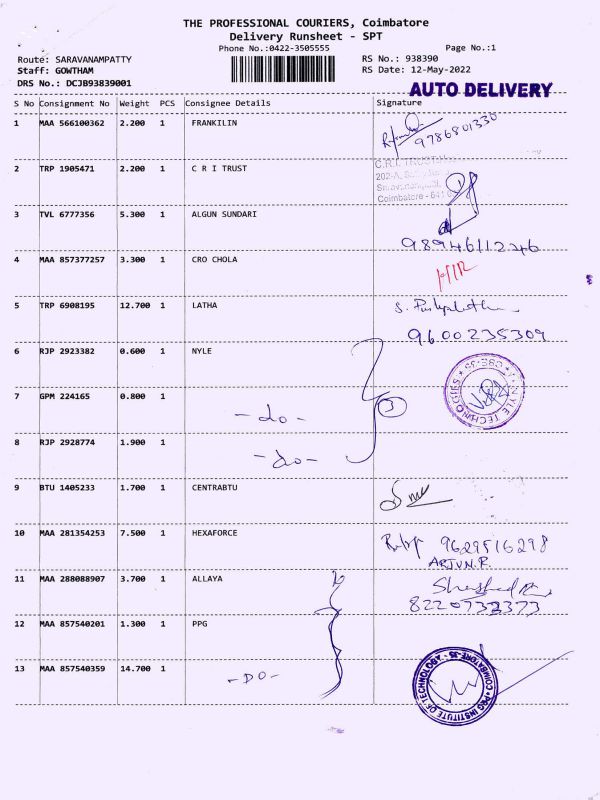 THE PROFESSIONAL COURIERS, Coimbatore
Delivery Runsheet - SPT
Phone No.:0422-3505555
Page No.:1
Route: SARAVANAMPATTY
RS No.: 938390
Staff: GOWTHAM
RS Date: 12-May-2022
DRS No.: DCJB93839001
AUTO DELIVERY
S No Consignment No Weight PCS Consignee Details Signature
1 MAA 566100362 2.200 1 FRANKILIN
9786801330
2 TRP 1905471 2.200 1 C R I TRUST
C.R.I. TRUST
202-A,
Coimbatore - 641
3 TVL 6777356 5.300 1 ALGUN SUNDARI
98946112246
4 MAA 857377257 3.300 1 CRO CHOLA
5 TRP 6908195 12.700 1 LATHA
9600235309
6 RJP 2923382 0.600 1 NYLE
NYLE TECHNOLOGIES
7 GPM 224165 0.800 1
-do-
3
8 RJP 2928774 1.900 1
-do-
9 BTU 1405233 1.700 1 CENTRABTU
10 MAA 281354253 7.500 1 HEXAFORCE
9629516298
ARJUN.R.
11 MAA 288088907 3.700 1 ALLAYA
8220732373
12 MAA 857540201 1.300 1 PPG
13 MAA 857540359 14.700 1
-DO-
PPG INSTITUTE OF TECHNOLOGY COIMBATORE-35